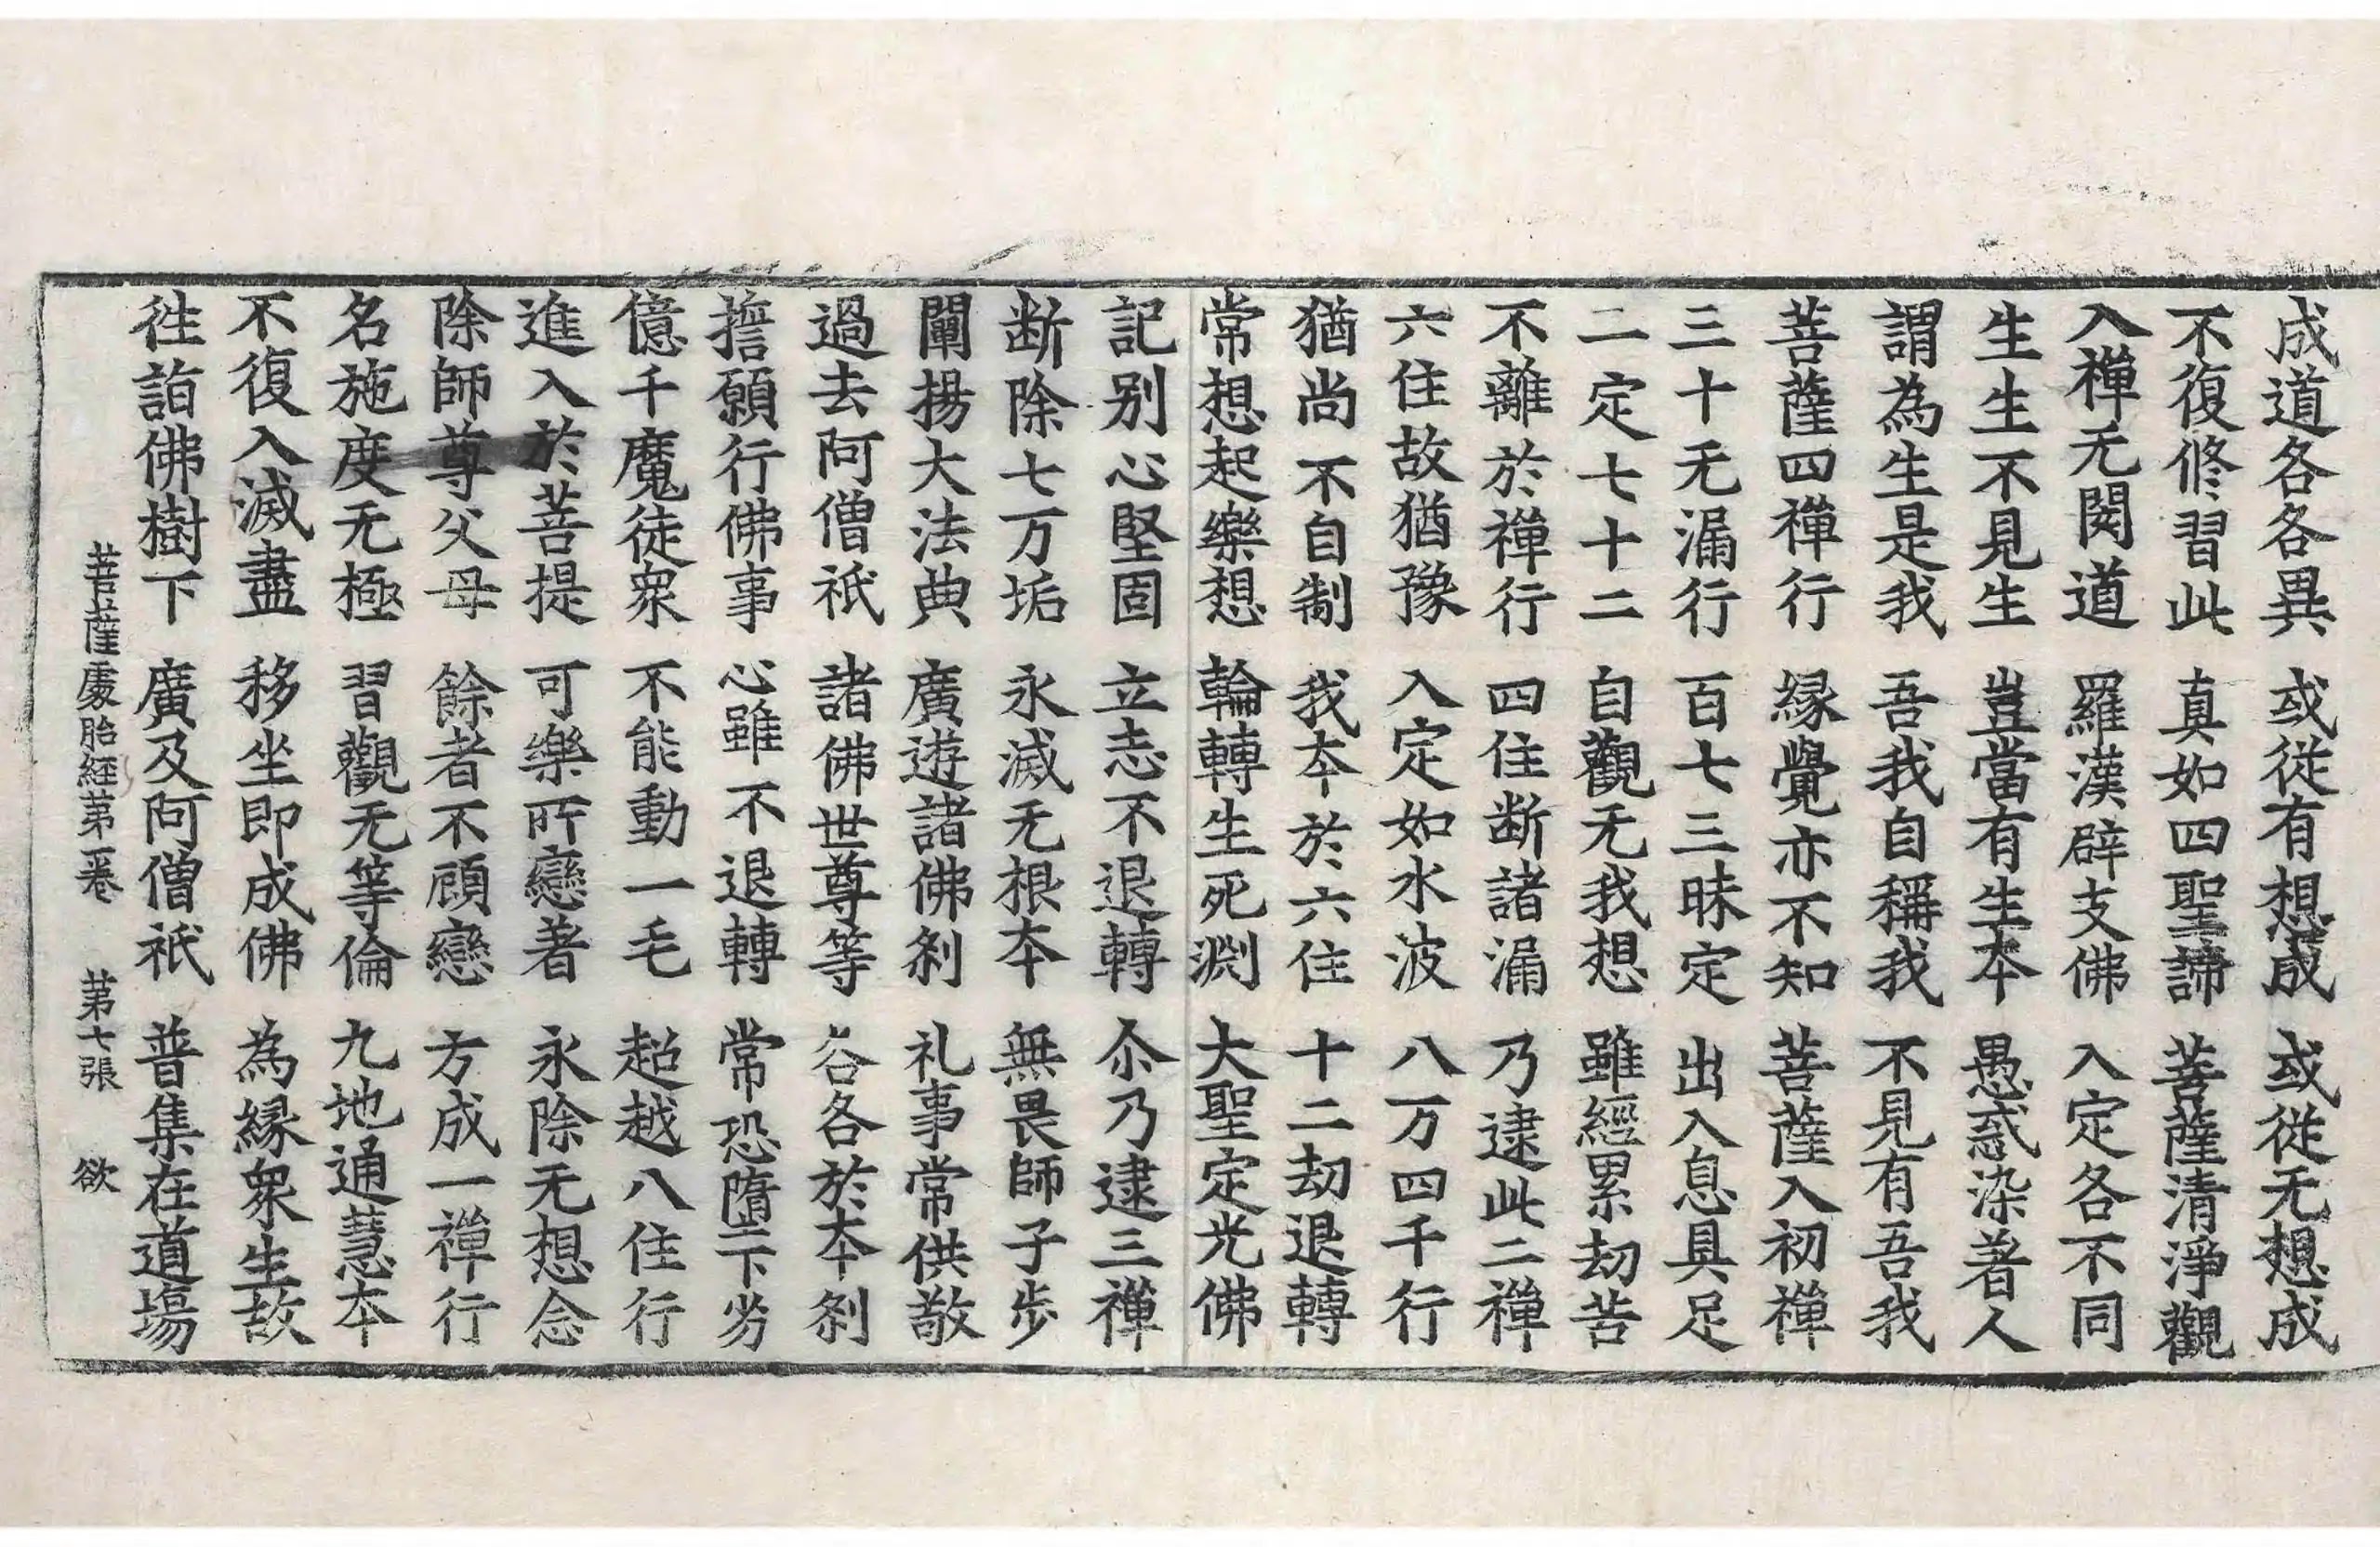 成道各各異 或從有想成 或從无想成
不復修習此 真如四聖諦 菩薩清淨觀
入禪无閡道 羅漢辟支佛 入定各不同
生生不見生 豈當有生本 愚惑染著人
謂為生是我 吾我自稱我 不見有吾我
菩薩四禪行 緣覺亦不知 菩薩入初禪
三十无漏行 百七三昧定 出入息具足
二定七十二 自觀无我想 雖經累劫苦
不離於禪行 四住断諸漏 乃逮此二禪
六住故猶豫 入定如水波 八万四千行
猶尚不自制 我本於六住 十二劫退轉
常想起樂想 輪轉生死淵 大聖定光佛
記别心堅固 立志不退轉 尒乃逮三禪
断除七万垢 永滅无根本 無畏師子步
闡揚大法典 廣遊諸佛刹 礼事常供敬
過去阿僧祇 諸佛世尊等 各各於本刹
擔願行佛事 心雖不退轉 常恐墮下劣
億千魔徒衆 不能動一毛 超越八住行
進入於菩提 可樂所戀著 永除无想念
除師尊父母 餘者不顧戀 方成一禪行
名施度无極 習觀无等倫 九地通慧本
不復入滅盡 移坐即成佛 為緣衆生故
往詣佛樹下 廣及阿僧祇 普集在道塲
菩薩處胎經第一卷 第七張 欲